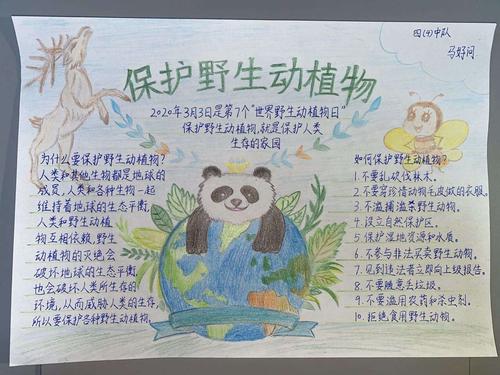 四(4)中队
马好问
保护野生动植物
2020年3月3日是第7个"世界野生动植物日"
保护野生动植物,就是保护人类
生存的家园
为什么要保护野生动植物?
人类和其他生物都是地球的
成员,人类和各种生物一起
维持着地球的生态平衡,
人类和野生动植
物互相依赖,野生
动植物的灭绝会
破坏地球的生态平衡
也会破坏人类所生存的
环境,从而威胁人类的生存,
所以要保护各种野生动植物,
如何保护野生动植物?
1.不要乱砍伐林木。
2.不要穿珍惜动物毛皮做的衣服。
3.不滥捕滥杀野生动物。
4.设立自然保护区。
5.保护湿地资源和水质。
6.不参与非法买卖野生动物。
7.见到违法者立即向上级报告。
8.不要随意丢垃圾。
9.不要滥用农药和杀虫剂。
10.拒绝食用野生动物。